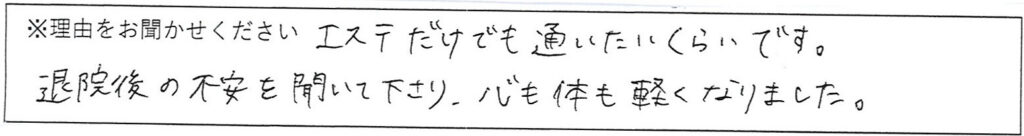 ※理由をお聞かせください エステだけでも通いたいくらいです。
退院後の不安を聞いて下さり、心も体も軽くなりました。